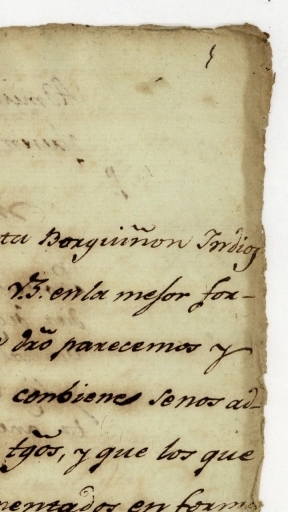 ta Borguiñon Indios
V.S. en la mejor for-
dr̃o parecemos y
conbiene se nos ad-
tg̃os, y que los que
mentados en forma